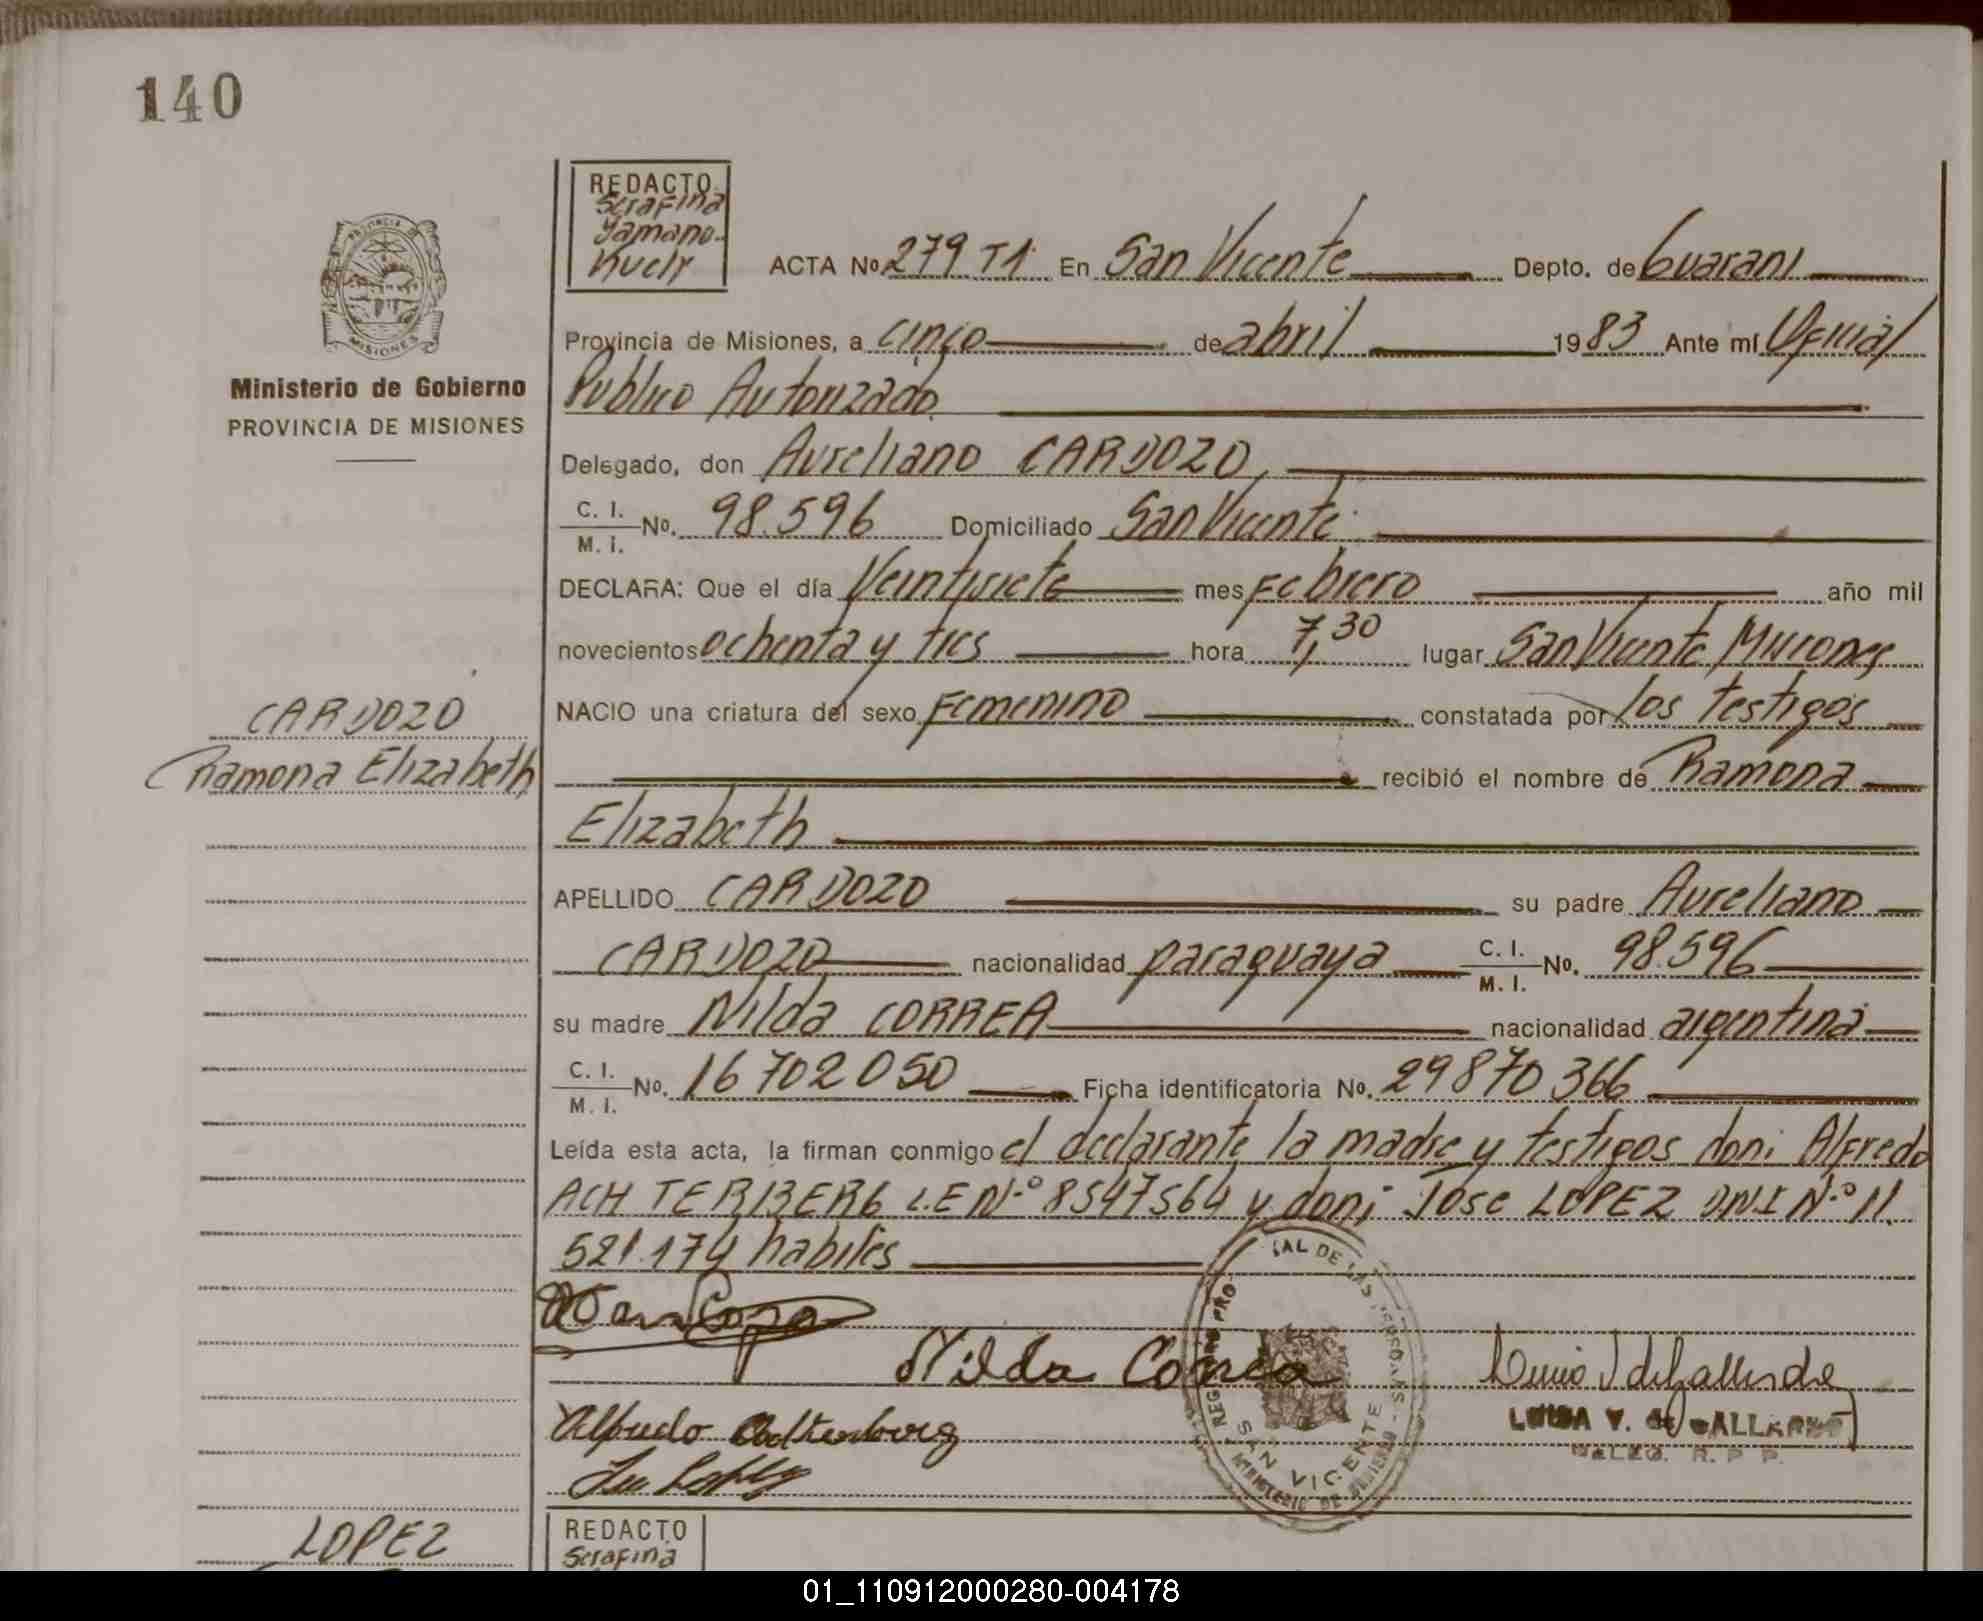 140
REDACTO
Serafina
Yamano-
Kuchy
ACTA No. 279 T1. En San Vicente Depto. de Guarani
PROVINCIA DE
MISIONES
Provincia de Misiones, a cinco de abril 1983 Ante mí Oficial
Ministerio de Gobierno
PROVINCIA DE MISIONES
Publico Autorizado.
Delegado, don Aureliano CARDOZO,
C. I.
M. I. No. 98.596 Domiciliado San Vicente
DECLARA: Que el día Veintisiete mes Febrero año mil
novecientos ochenta y tres hora 7,30 lugar San Vicente Misiones
CARDOZO
Ramona Elizabeth
NACIO una criatura del sexo Femenino constatada por los testigos
recibió el nombre de Ramona
Elizabeth
APELLIDO CARDOZO su padre Aureliano
CARDOZO nacionalidad paraguaya C. I. M. I. No. 98.596
su madre Nilda CORREA nacionalidad argentina
C. I.
M. I. No. 16702050 Ficha identificatoria No. 29870366
Leída esta acta, la firman conmigo el declarante la madre y testigos don: Alfredo
ACHTERBERG L.E N.° 8547564 y don: Jose LOPEZ D.N.I N.° 11.
521.174 habiles
Nilda Correa
Alfredo Achterberg
LUISA V. de GALLARDO
DELEG. R. P. P.
SAN VICENTE
MINISTERIO DE GOBIERNO
LOPEZ
REDACTO
Serafina
01_110912000280-004178